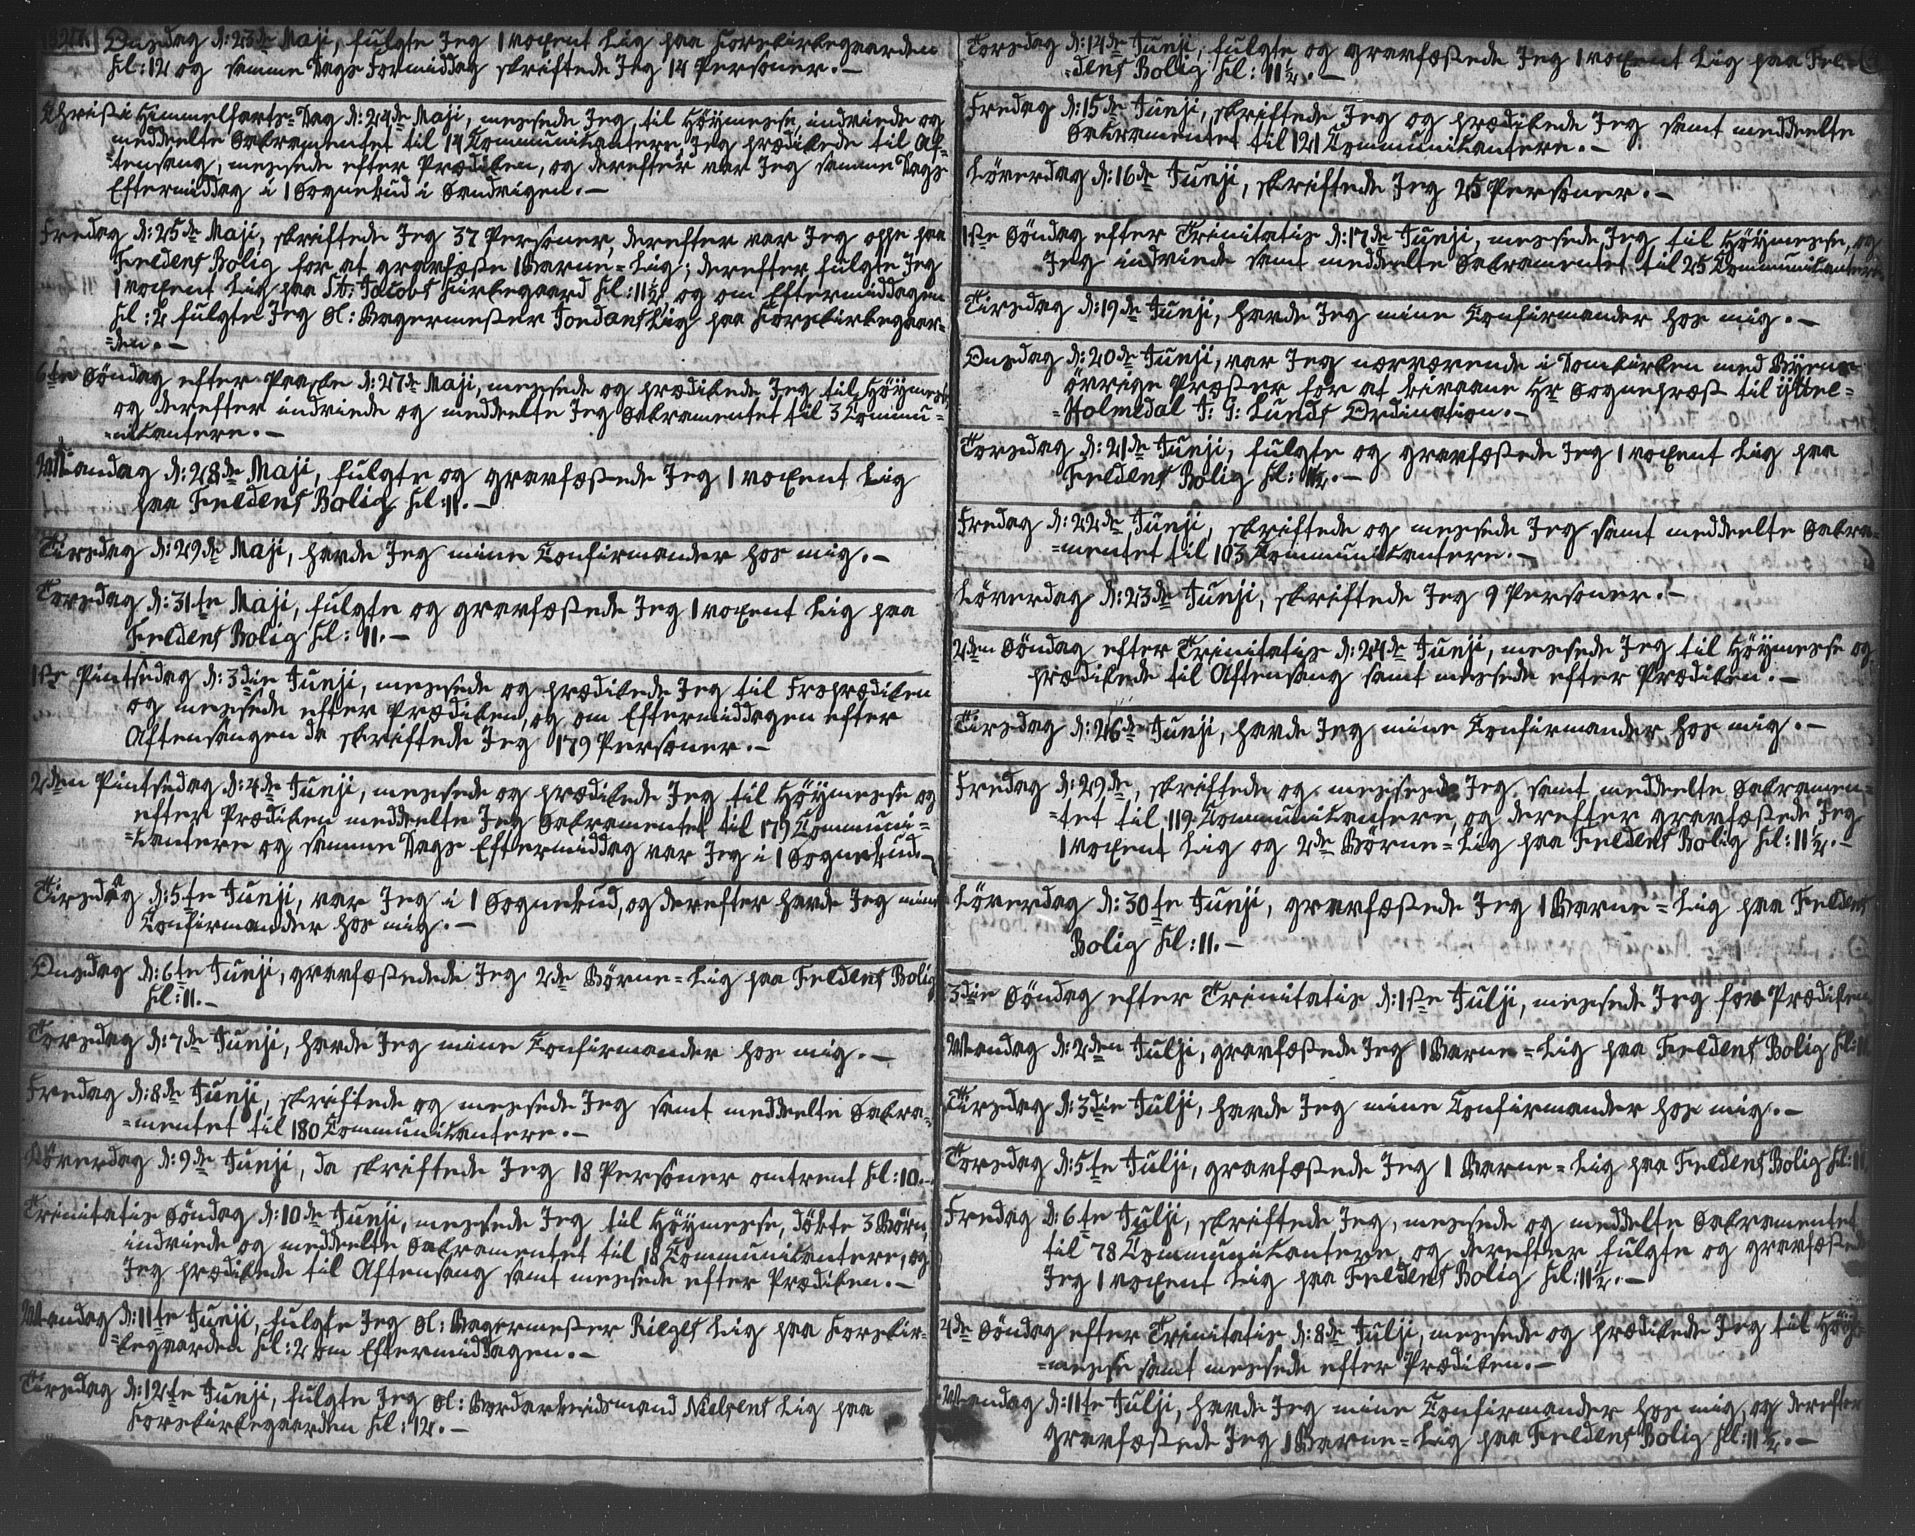 1827. Onsdag d: 23de Maji, fulgte Jeg 1 voxent Lig paa Korskirkegaarden
Kl: 12 og samme Dags Formiddag skriftede Jeg 14 Personer.-
Christi Himmelfarts-Dag d: 24de Maji, messede Jeg til Höymesse, indviede og
meddeelte Sakramentet til 14 Communikantere, Jeg prædikede til Af-
-tensang, messede efter Prædiken, og derefter var Jeg samme Dags
Eftermiddag i 1 Sognebud i Sandvigen.-
Fredag d: 25de Maji, skriftede Jeg 37 Personer, derefter var Jeg oppe paa
Freldens Bolig for at gravfæste 1 Barne-Lig; derefter fulgte Jeg
1 voxent Lig paa St: Jacobs Kirkegaard Kl: 11½, og om Eftermiddagen
Kl: 2 fulgte Jeg Sl: Bagermester Tondans Lig paa Korskirkegaar-
-den.-
6te Söndag efter Paaske d: 27de Maji, messede og prædikede Jeg til Höymesse,
og derefter indviede og meddeelte Jeg Sakramentet til 3 Commu-
-nikantere.-
Mandag d: 28de Maji, fulgte og gravfæstede Jeg 1 voxent Lig
paa Freldens Bolig Kl: 11.-
Tirsdag d: 29de Maji, havde Jeg mine Confirmander hos mig.-
Torsdag d: 31te Maji, fulgte og gravfæstede Jeg 1 voxent Lig paa
Freldens Bolig Kl: 11.-
1ste Pintsedag d: 3die Junji, messede og prædikede Jeg til Froprædiken
og messede efter Prædiken, og om Eftermiddagen efter
Aftensangen da skriftede Jeg 179 Personer.-
2den Pintsedag d: 4de Junji, messede og prædikede Jeg til Höymesse og
efter Prædiken meddeelte Jeg Sakramentet til 179 Communi-
-kantere og samme Dags Eftermiddag var Jeg i 1 Sognebud.-
Tirsdag d: 5te Junji, var Jeg i 1 Sognebud, og derefter havde Jeg mine
Confirmander hos mig.-
Onsdag d: 6te Junji, gravfæstedede Jeg 2de Börne-Lig paa Freldens Bolig
Kl: 11.-
Torsdag d: 7de Junji, havde Jeg mine Confirmander hos mig.-
Fredag d: 8de Junji, skriftede og messede Jeg samt meddeelte Sakra-
-mentet til 180 Communikantere.-
Löverdag d: 9de Junji, da skriftede Jeg 18 Personer omtrent Kl: 10.-
Trinitatis Söndag d: 10de Junji, messede Jeg til Höymesse, döbte 3 Börn,
indviede og meddeelte Sakramentet til 18 Communikantere, og
Jeg prædikede til Aftensang samt messede efter Prædiken.-
Mandag d: 11te Junji, fulgte Jeg Sl: Bagermester Riegels Lig paa Korskir-
-kegaarden Kl: 2 om Eftermiddagen.-
Tirsdag d: 12te Junji, fulgte Jeg Sl: Bordarbeidsmand Nielsens Lig paa
Korskirkegaarden Kl: 12.-
Torsdag d: 14de Junji, fulgte og gravfæstede Jeg 1 voxent Lig paa Frel-
-dens Bolig Kl: 11½.-
Fredag d: 15de Junji, skriftede Jeg og prædikede Jeg samt meddeelte
Sakramentet til 121 Communikantere.-
Löverdag d: 16de Junji, skriftede Jeg 25 Personer.-
1ste Söndag efter Trinitatis d: 17de Junji, messede Jeg til Höymesse, og
Jeg indviede samt meddeelte Sakramentet til 25 Communikantere.
Tirsdag d: 19de Junji, havde Jeg mine Confirmander hos mig.-
Onsdag d: 20de Junji, var Jeg nærværende i Domkirken med Byens
övrige Præster for at bivaane Hr Sognepræst til Ytter-
-Holmedal J: G: Lunds Ordination.-
Torsdag d: 21de Junji, fulgte og gravfæstede Jeg 1 voxent Lig paa
Freldens Bolig Kl: 11½.-
Fredag d: 22de Junji, skriftede og messede Jeg samt meddeelte Sakra-
-mentet til 103 Communikantere.-
Löverdag d: 23de Junji, skriftede Jeg 9 Personer.-
2den Söndag efter Trinitatis d: 24de Junji, messede Jeg til Höymesse og
prædikede til Aftensang samt messede efter Prædiken.-
Tirsdag d: 26de Junji, havde Jeg mine Confirmander hos mig.-
Fredag d: 29de, skriftede og messede Jeg samt meddeelte Sakramen-
-tet til 119 Communikantere, og derefter gravfæstede Jeg
1 voxent Lig og 2de Börne-Lig paa Freldens Bolig Kl: 11½.-
Löverdag d: 30te Junji, gravfæstede Jeg 1 Barne-Lig paa Freldens
Bolig Kl: 11.-
3die Söndag efter Trinitatis d: 1ste Julji, messede Jeg for Prædiken
Mandag d: 2den Julji, gravfæstede Jeg 1 Barne-Lig paa Freldens Bolig Kl: 11
Tirsdag d: 3die Julji, havde Jeg mine Confirmander hos mig.-
Torsdag d: 5te Julji, gravfæstede Jeg 1 Barne-Lig paa Freldens Bolig Kl: 11
Fredag d: 6te Julji, skriftede Jeg, messede og meddelte Sakramentet
til 78 Communikantere, og derefter fulgte og gravfæstede
Jeg 1 voxent Lig paa Freldens Bolig Kl: 11½.-
4de Söndag efter Trinitatis d: 8de Julji, messede og prædikede Jeg til Höy-
-messe samt messede efter Prædiken.-
Mandag d: 11te Julji, havde Jeg mine Confirmander hos mig, og derefter
gravfæstede Jeg 1 Barne-Lig paa Freldens Bolig Kl: 11½.-